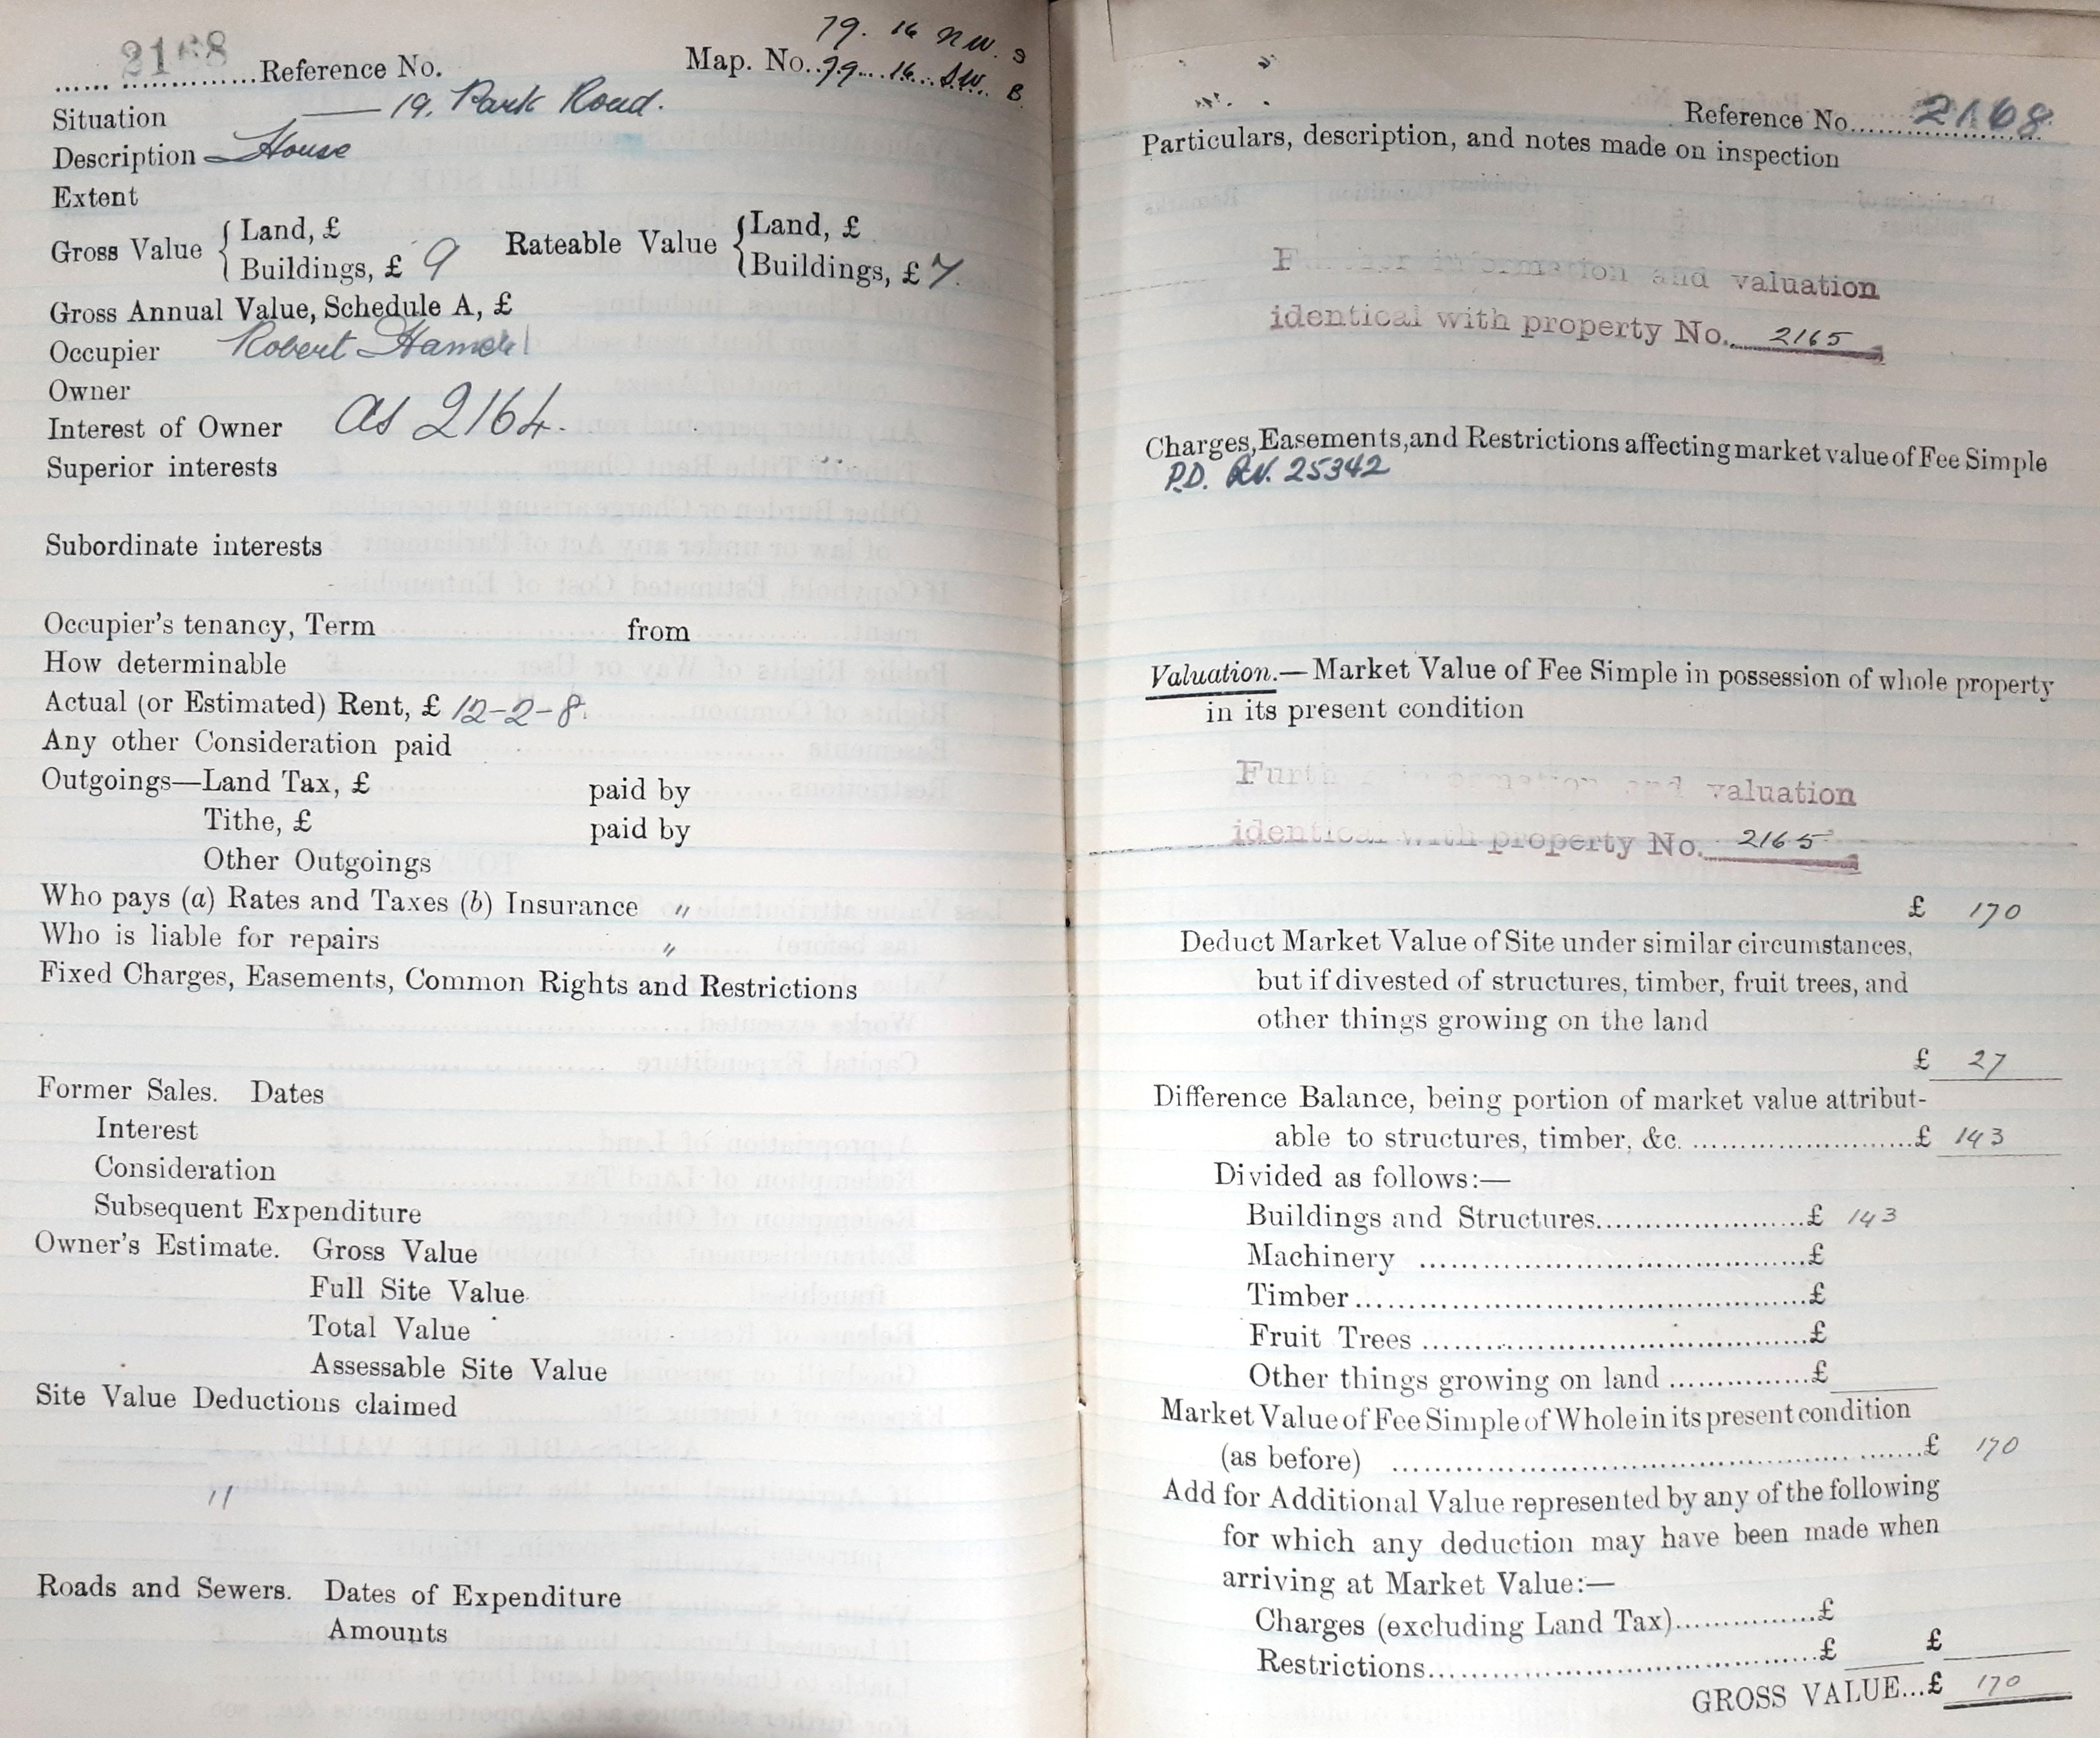 2168
79. 16 N.W. 9
...... ...............Reference No. Map. No..79...16...S.W.. B.
Situation — 19, Park Road.
Description — House
Extent
Gross Value { Land, £ Rateable Value { Land, £
Buildings, £ 9 Buildings, £ 7.
Gross Annual Value, Schedule A, £
Occupier Robert
Owner
Interest of Owner as 2164.
Superior interests
Subordinate interests
Occupier's tenancy, Term from
How determinable
Actual (or Estimated) Rent, £ 12-2-8.
Any other Consideration paid
Outgoings—Land Tax, £ paid by
Tithe, £ paid by
Other Outgoings
Who pays (a) Rates and Taxes (b) Insurance "
Who is liable for repairs "
Fixed Charges, Easements, Common Rights and Restrictions
Former Sales. Dates
Interest
Consideration
Subsequent Expenditure
Owner's Estimate. Gross Value
Full Site Value
Total Value
Assessable Site Value
Site Value Deductions claimed
"
Roads and Sewers. Dates of Expenditure
Amounts
Reference No. 2168
Particulars, description, and notes made on inspection
Further information and valuation
identical with property No. 2165
Charges, Easements, and Restrictions affecting market value of Fee Simple
P.D. 25342
Valuation.—Market Value of Fee Simple in possession of whole property
in its present condition
Further information and valuation
identical with property No. 2165
£ 170
Deduct Market Value of Site under similar circumstances,
but if divested of structures, timber, fruit trees, and
other things growing on the land
£ 27
Difference Balance, being portion of market value attribut-
able to structures, timber, &c. ..............................£ 143
Divided as follows:—
Buildings and Structures........................£ 143
Machinery ..........................................£
Timber................................................£
Fruit Trees ..........................................£
Other things growing on land ................£
Market Value of Fee Simple of Whole in its present condition
(as before) .................................................£ 170
Add for Additional Value represented by any of the following
for which any deduction may have been made when
arriving at Market Value:—
Charges (excluding Land Tax)................£
Restrictions..........................................£ £
GROSS VALUE...£ 170